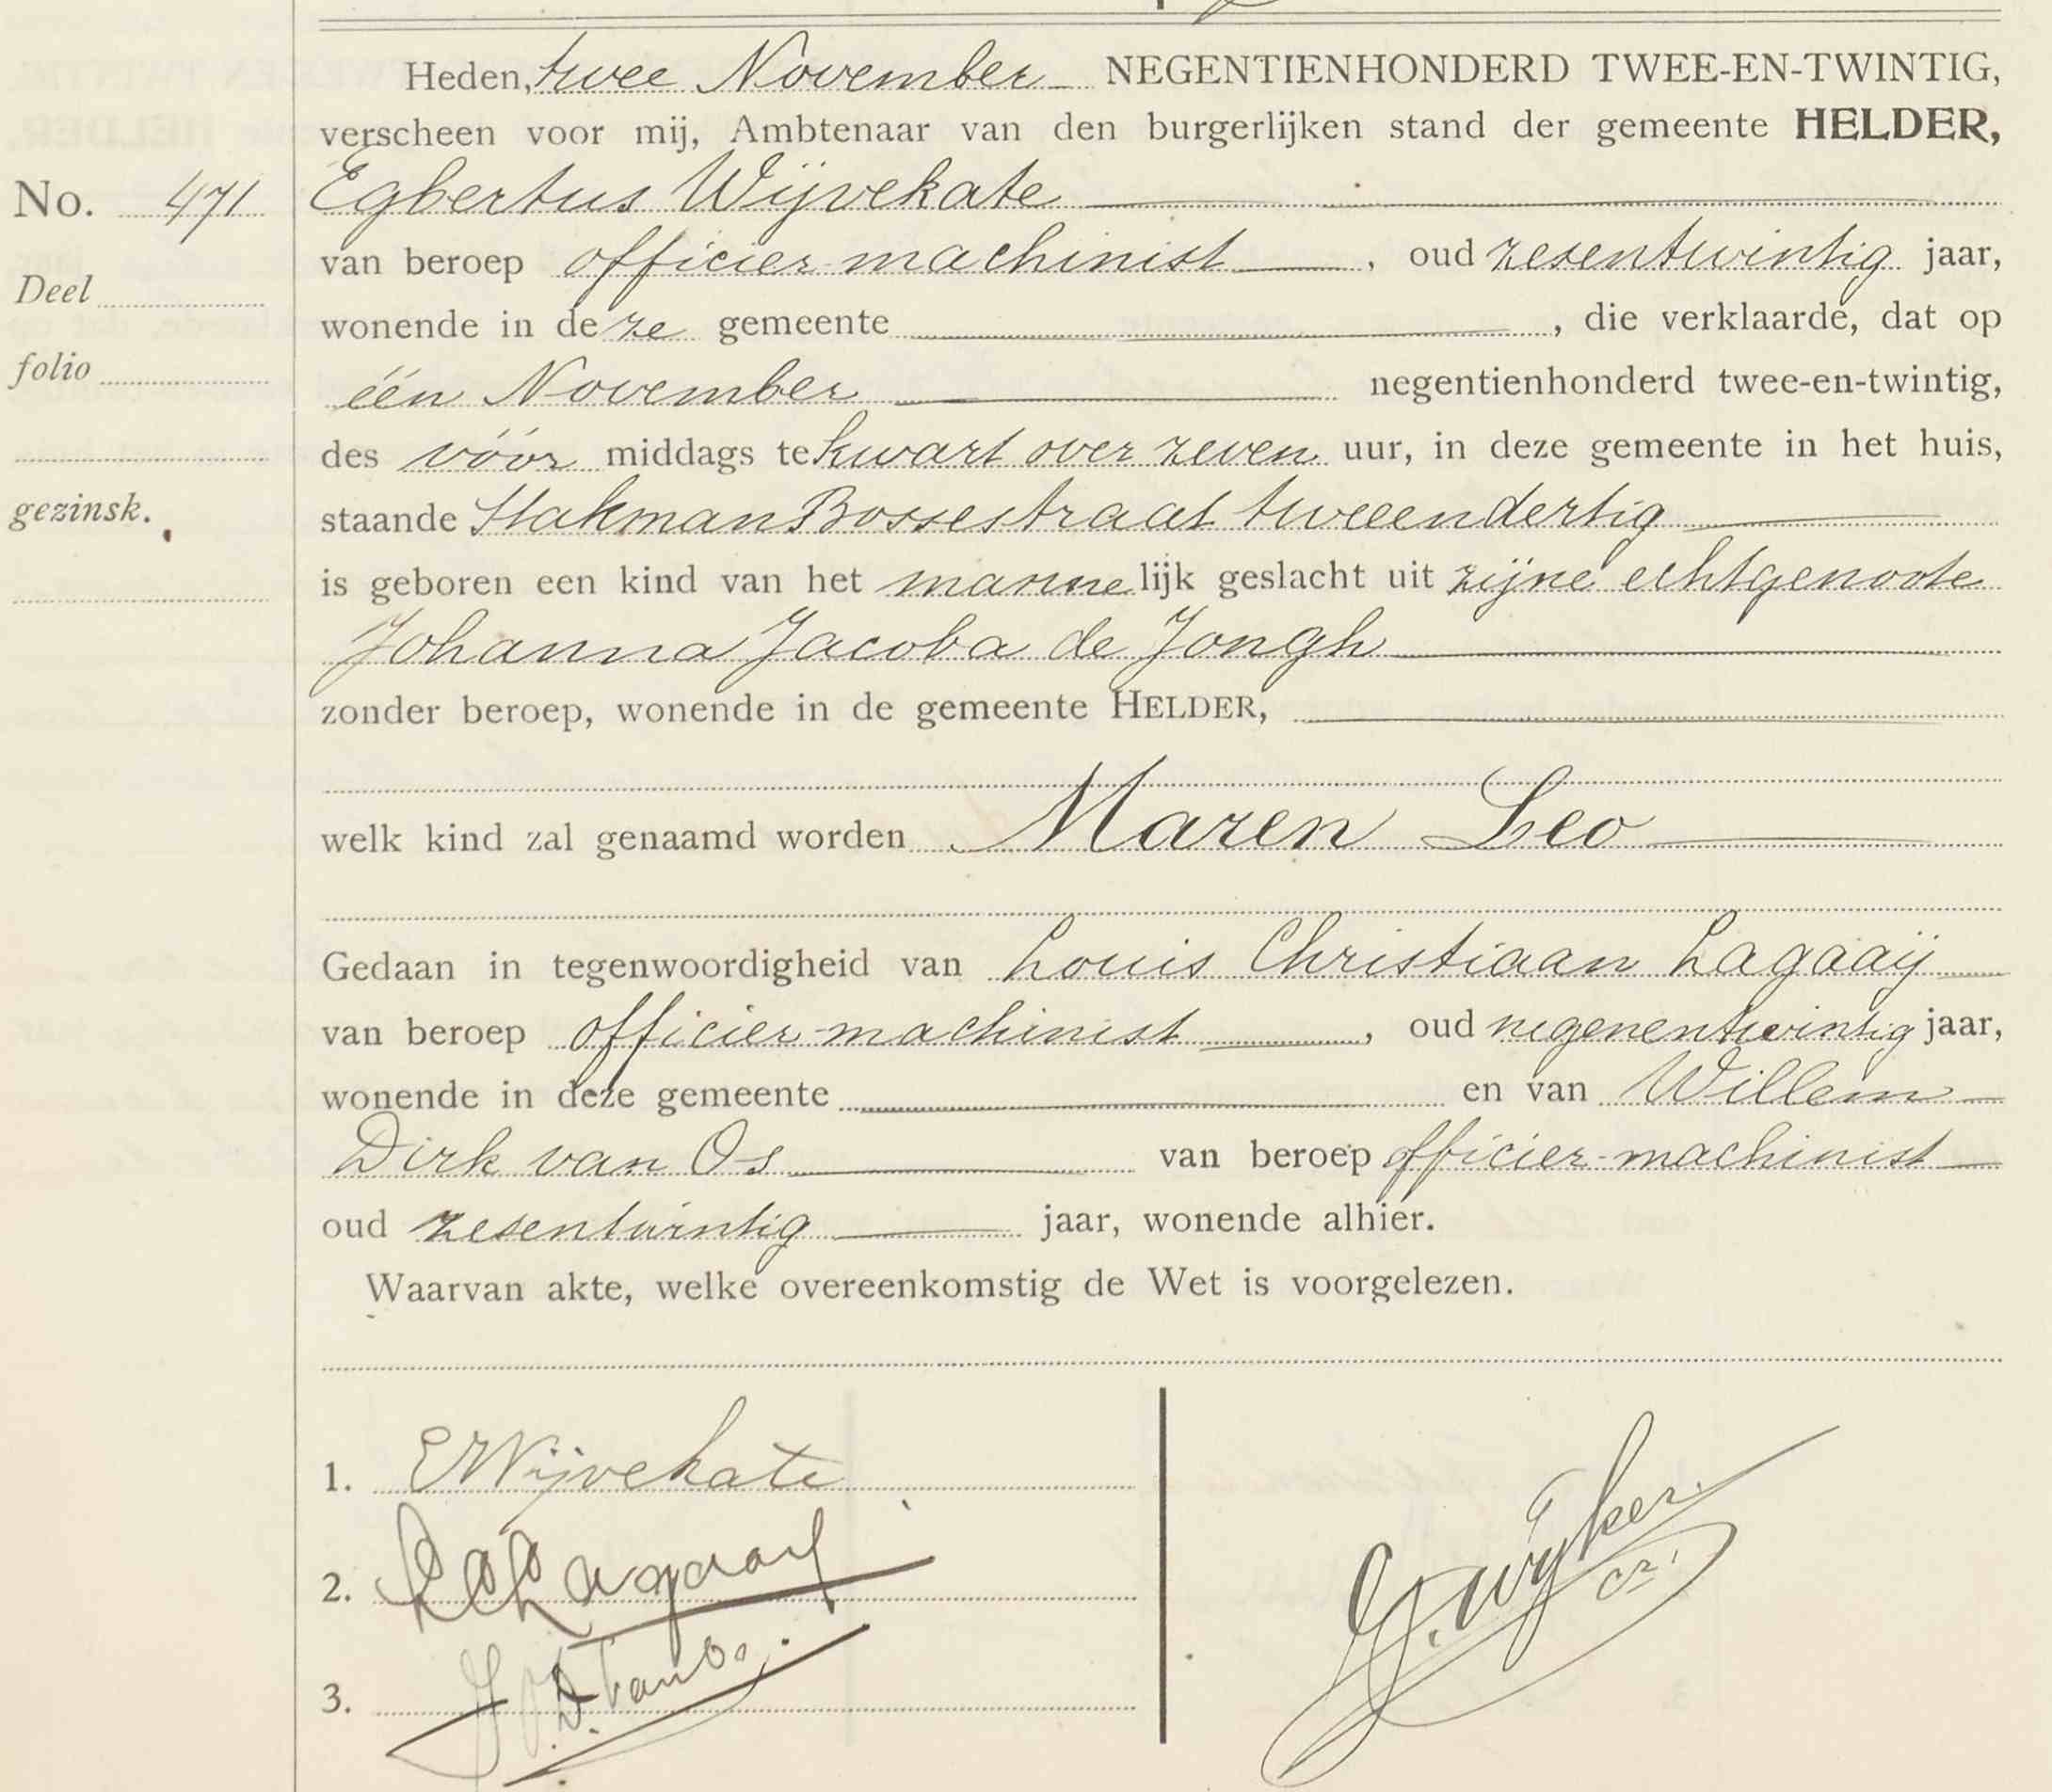 Heden, twee November NEGENTIENHONDERD TWEE-EN-TWINTIG,
verscheen voor mij, Ambtenaar van den burgerlijken stand der gemeente HELDER,
No. 471
Egbertus Wijvekate
van beroep officier-machinist, oud zesentwintig jaar,
Deel
wonende in deze gemeente, die verklaarde, dat op
folio
één November negentienhonderd twee-en-twintig,
des vóór middags te kwart over zeven uur, in deze gemeente in het huis,
gezinsk.
staande Stakman Bossestraat tweeendertig
is geboren een kind van het mannelijk geslacht uit zijne echtgenoote
Johanna Jacoba de Jongh
zonder beroep, wonende in de gemeente HELDER,
welk kind zal genaamd worden Maren Leo
Gedaan in tegenwoordigheid van Louis Christiaan Lagaaij
van beroep officier-machinist, oud negenentwintig jaar,
wonende in deze gemeente en van Willem
Dirk van Os van beroep officier-machinist
oud zesentwintig jaar, wonende alhier.
Waarvan akte, welke overeenkomstig de Wet is voorgelezen.
1. EWijvekate
2. LCLagaaij
3. W.D. van Os.